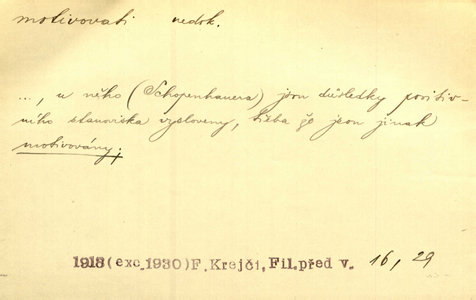 motivovati nedok.
..., u něho (Schopenhauera) jsou důsledky positiv-
ního stanoviska vysloveny, třeba že jsou jinak
motivovány;
1918(exc.1930)F.Krejčí,Fil.před v. 16, 29